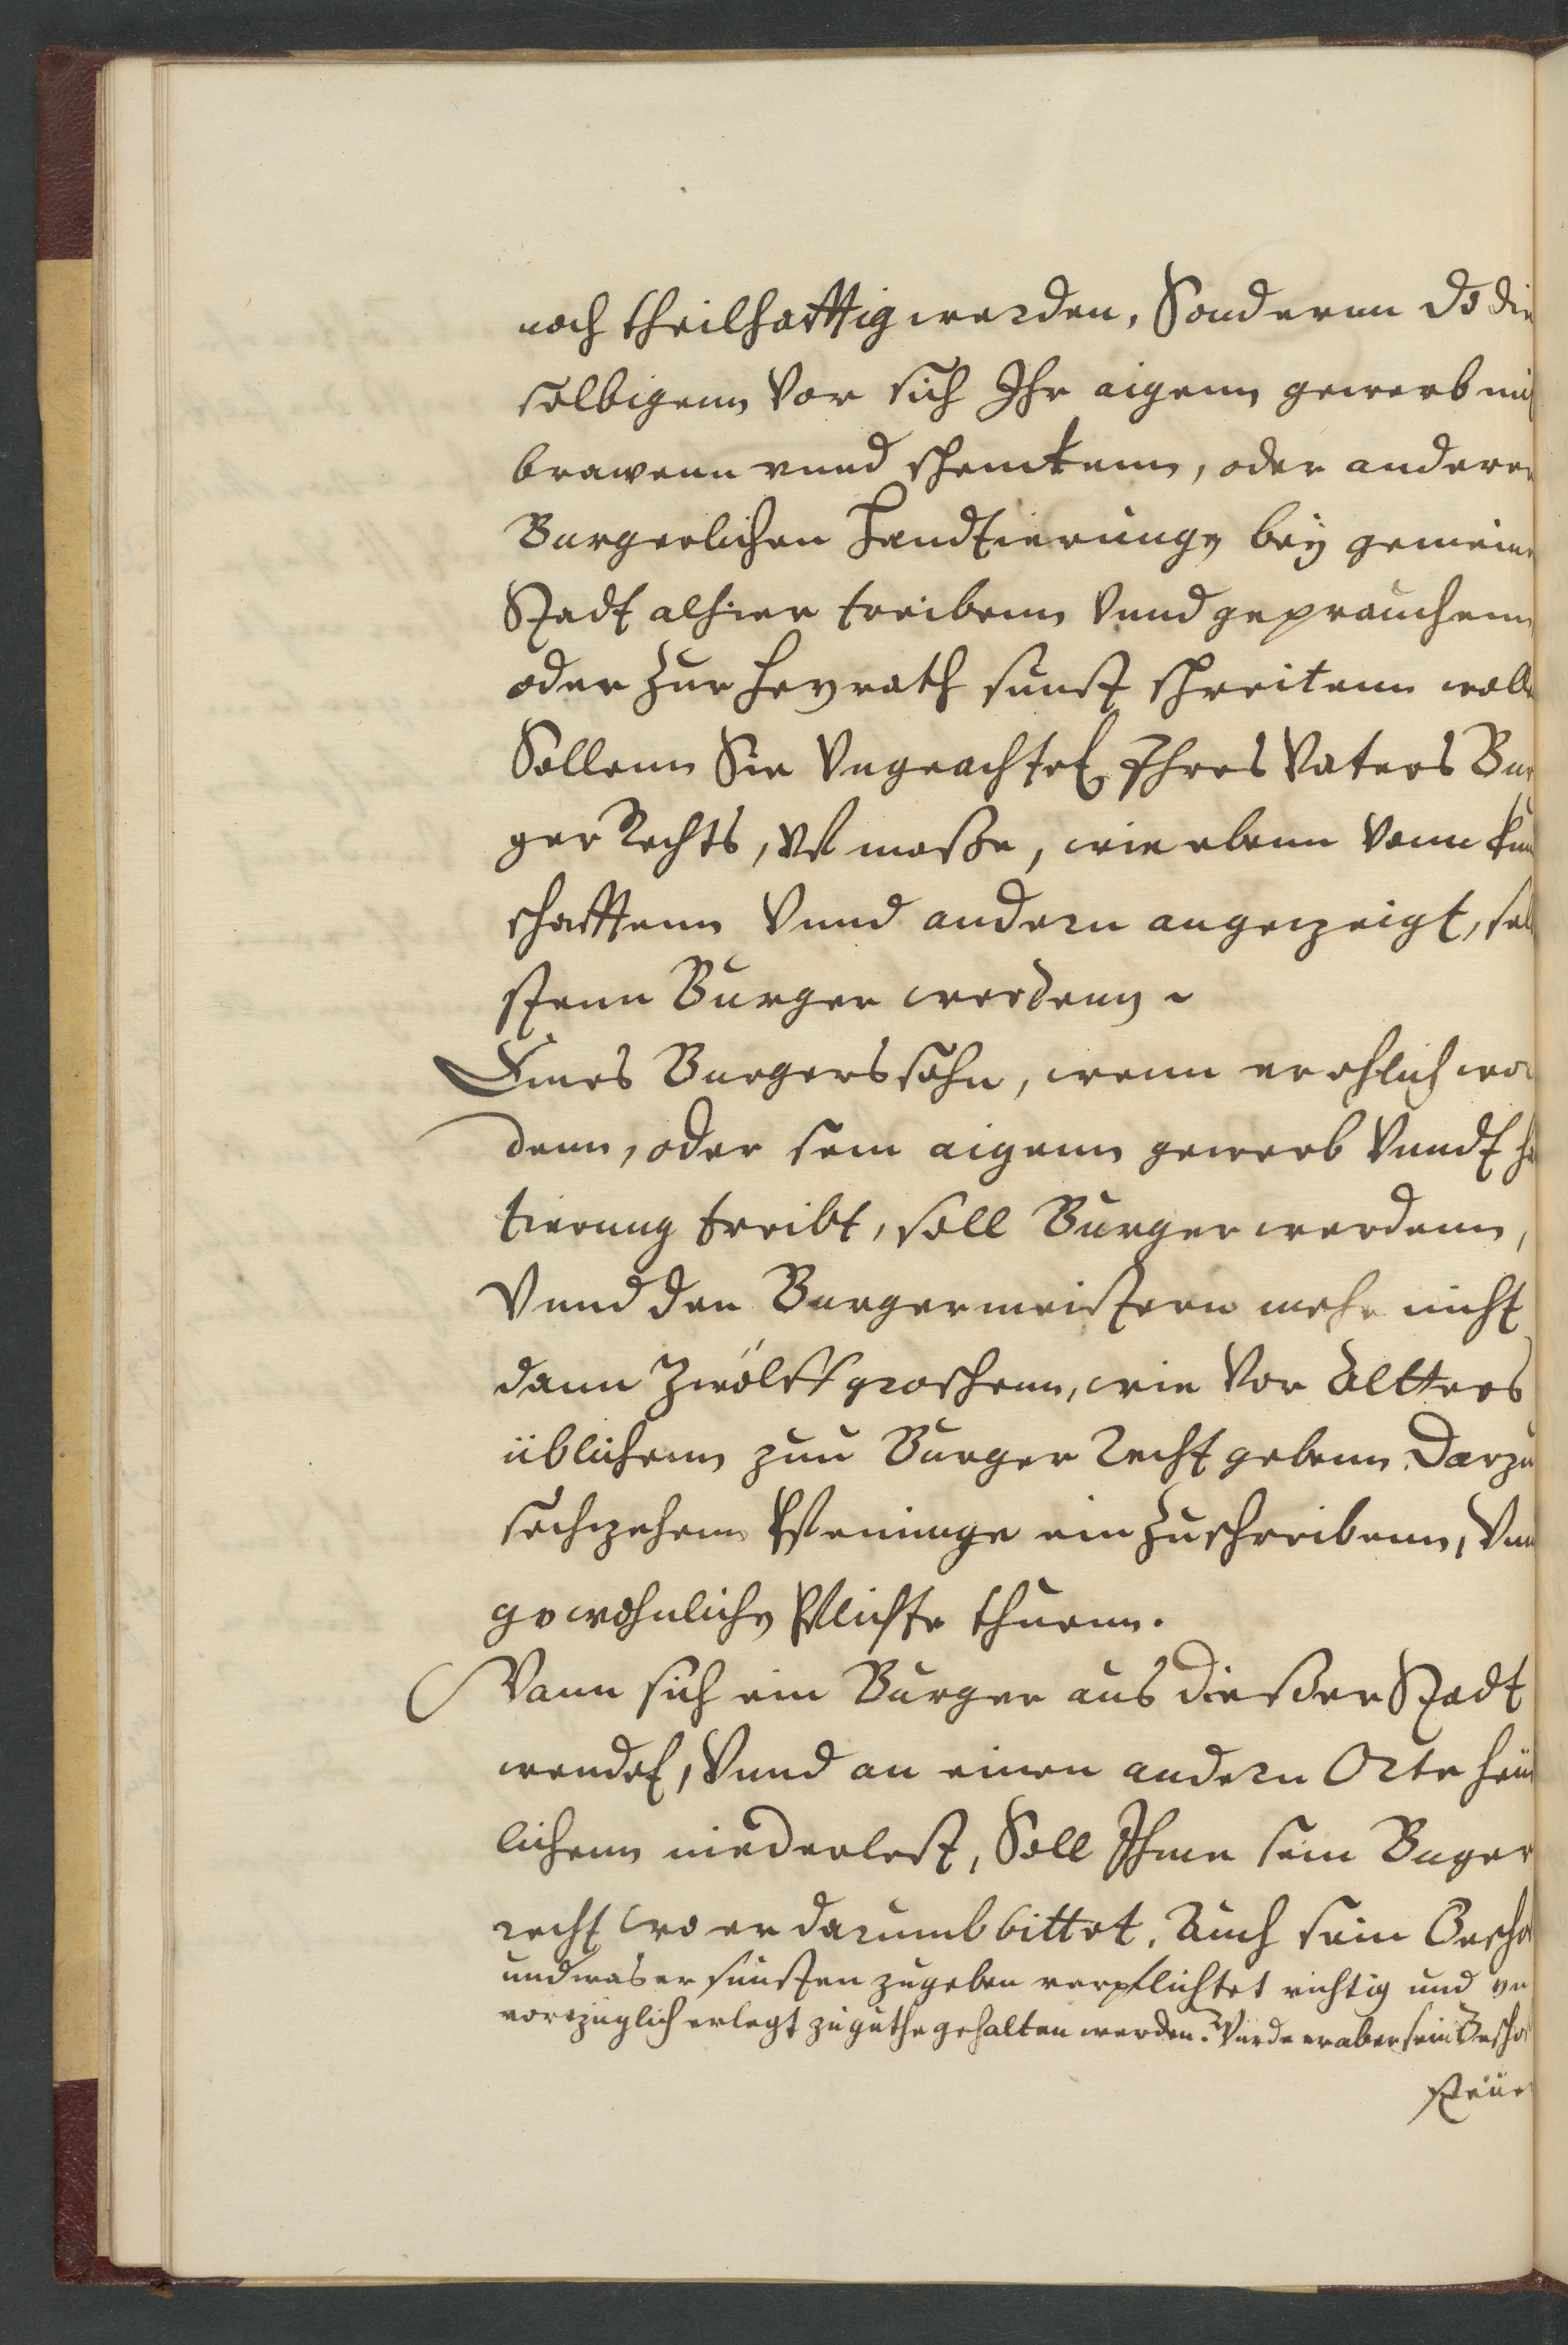 noch theilhafftig werden, Sondernn do die
selbigenn Vor sich Ihr aigenn gewerb mit
brawenn vnnd schenckenn, oder anderer
Burgerlichen handtierunge bey gemeine
Stadt alhier treibenn Vnnd geprauchenn
oder Zur heyrath sunst schreitenn wolle
Sollenn Sie Vngeachtet Ihres Vaters Bur
ger Rechts, Vff masse, wie ebenn Vonn kun
schafftenn Vnnd andern angezeigt, sel
stenn Burger werdenn ~
Eines Burgers sohn, wenn er ehlich wor
denn, oder sein aigenn gewerb Vnndt ha
tierung treibt, soll Burger werdenn,
Vnnd den Burgermeistern mehr nicht
dann Zwölff groschenn, wie Vor Altters
üblichenn zun Burger Recht gebenn. Darzu
sechzehenn Pfenninge ein Zuschreibenn, Vnn
gewohnliche Pflichte thuenn.
Wann sich ein Burger aus diesser Stadt
wendet, Vnnd an einen andern Orte heus
lichenn niederlest, Soll Ihme sein Buger
recht wo er darumb bittet. Auch sein Gescho
und was er sunsten zugeben verpflichtet richtig und vn
vorzüglich erlegt zuguthe gehalten werden. Wurde er aber sein Gescho
Steüer